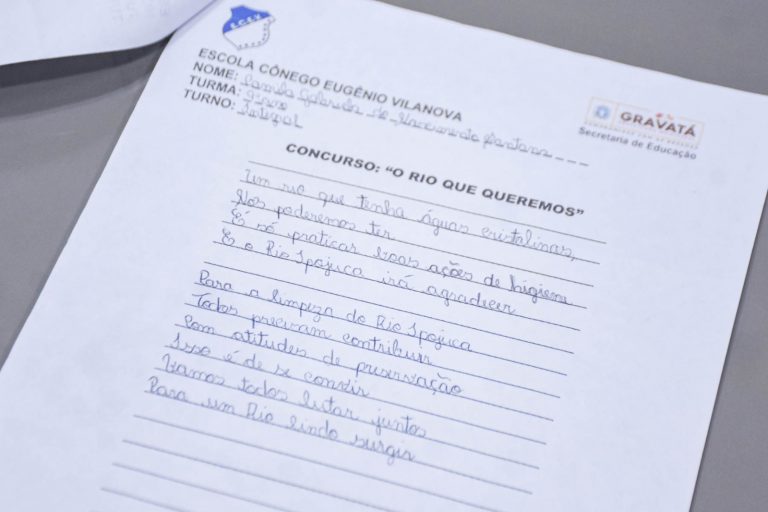 E.C.E.V.
ESCOLA CÔNEGO EUGÊNIO VILANOVA
NOME: Camila Gabriela do Nascimento Santana
TURMA: 9º
TURNO: Integral
GRAVATÁ
Secretaria de Educação
CONCURSO: "O RIO QUE QUEREMOS"
Um rio que tenha águas cristalinas,
Nós poderemos ter
É só praticar boas ações de higiene
E o Rio Ipojuca irá agradecer
Para a limpeza do Rio Ipojuca
Todos precisam contribuir
Com atitudes de preservação
Isso é de se convir
Vamos todos lutar juntos
Para um Rio lindo surgir